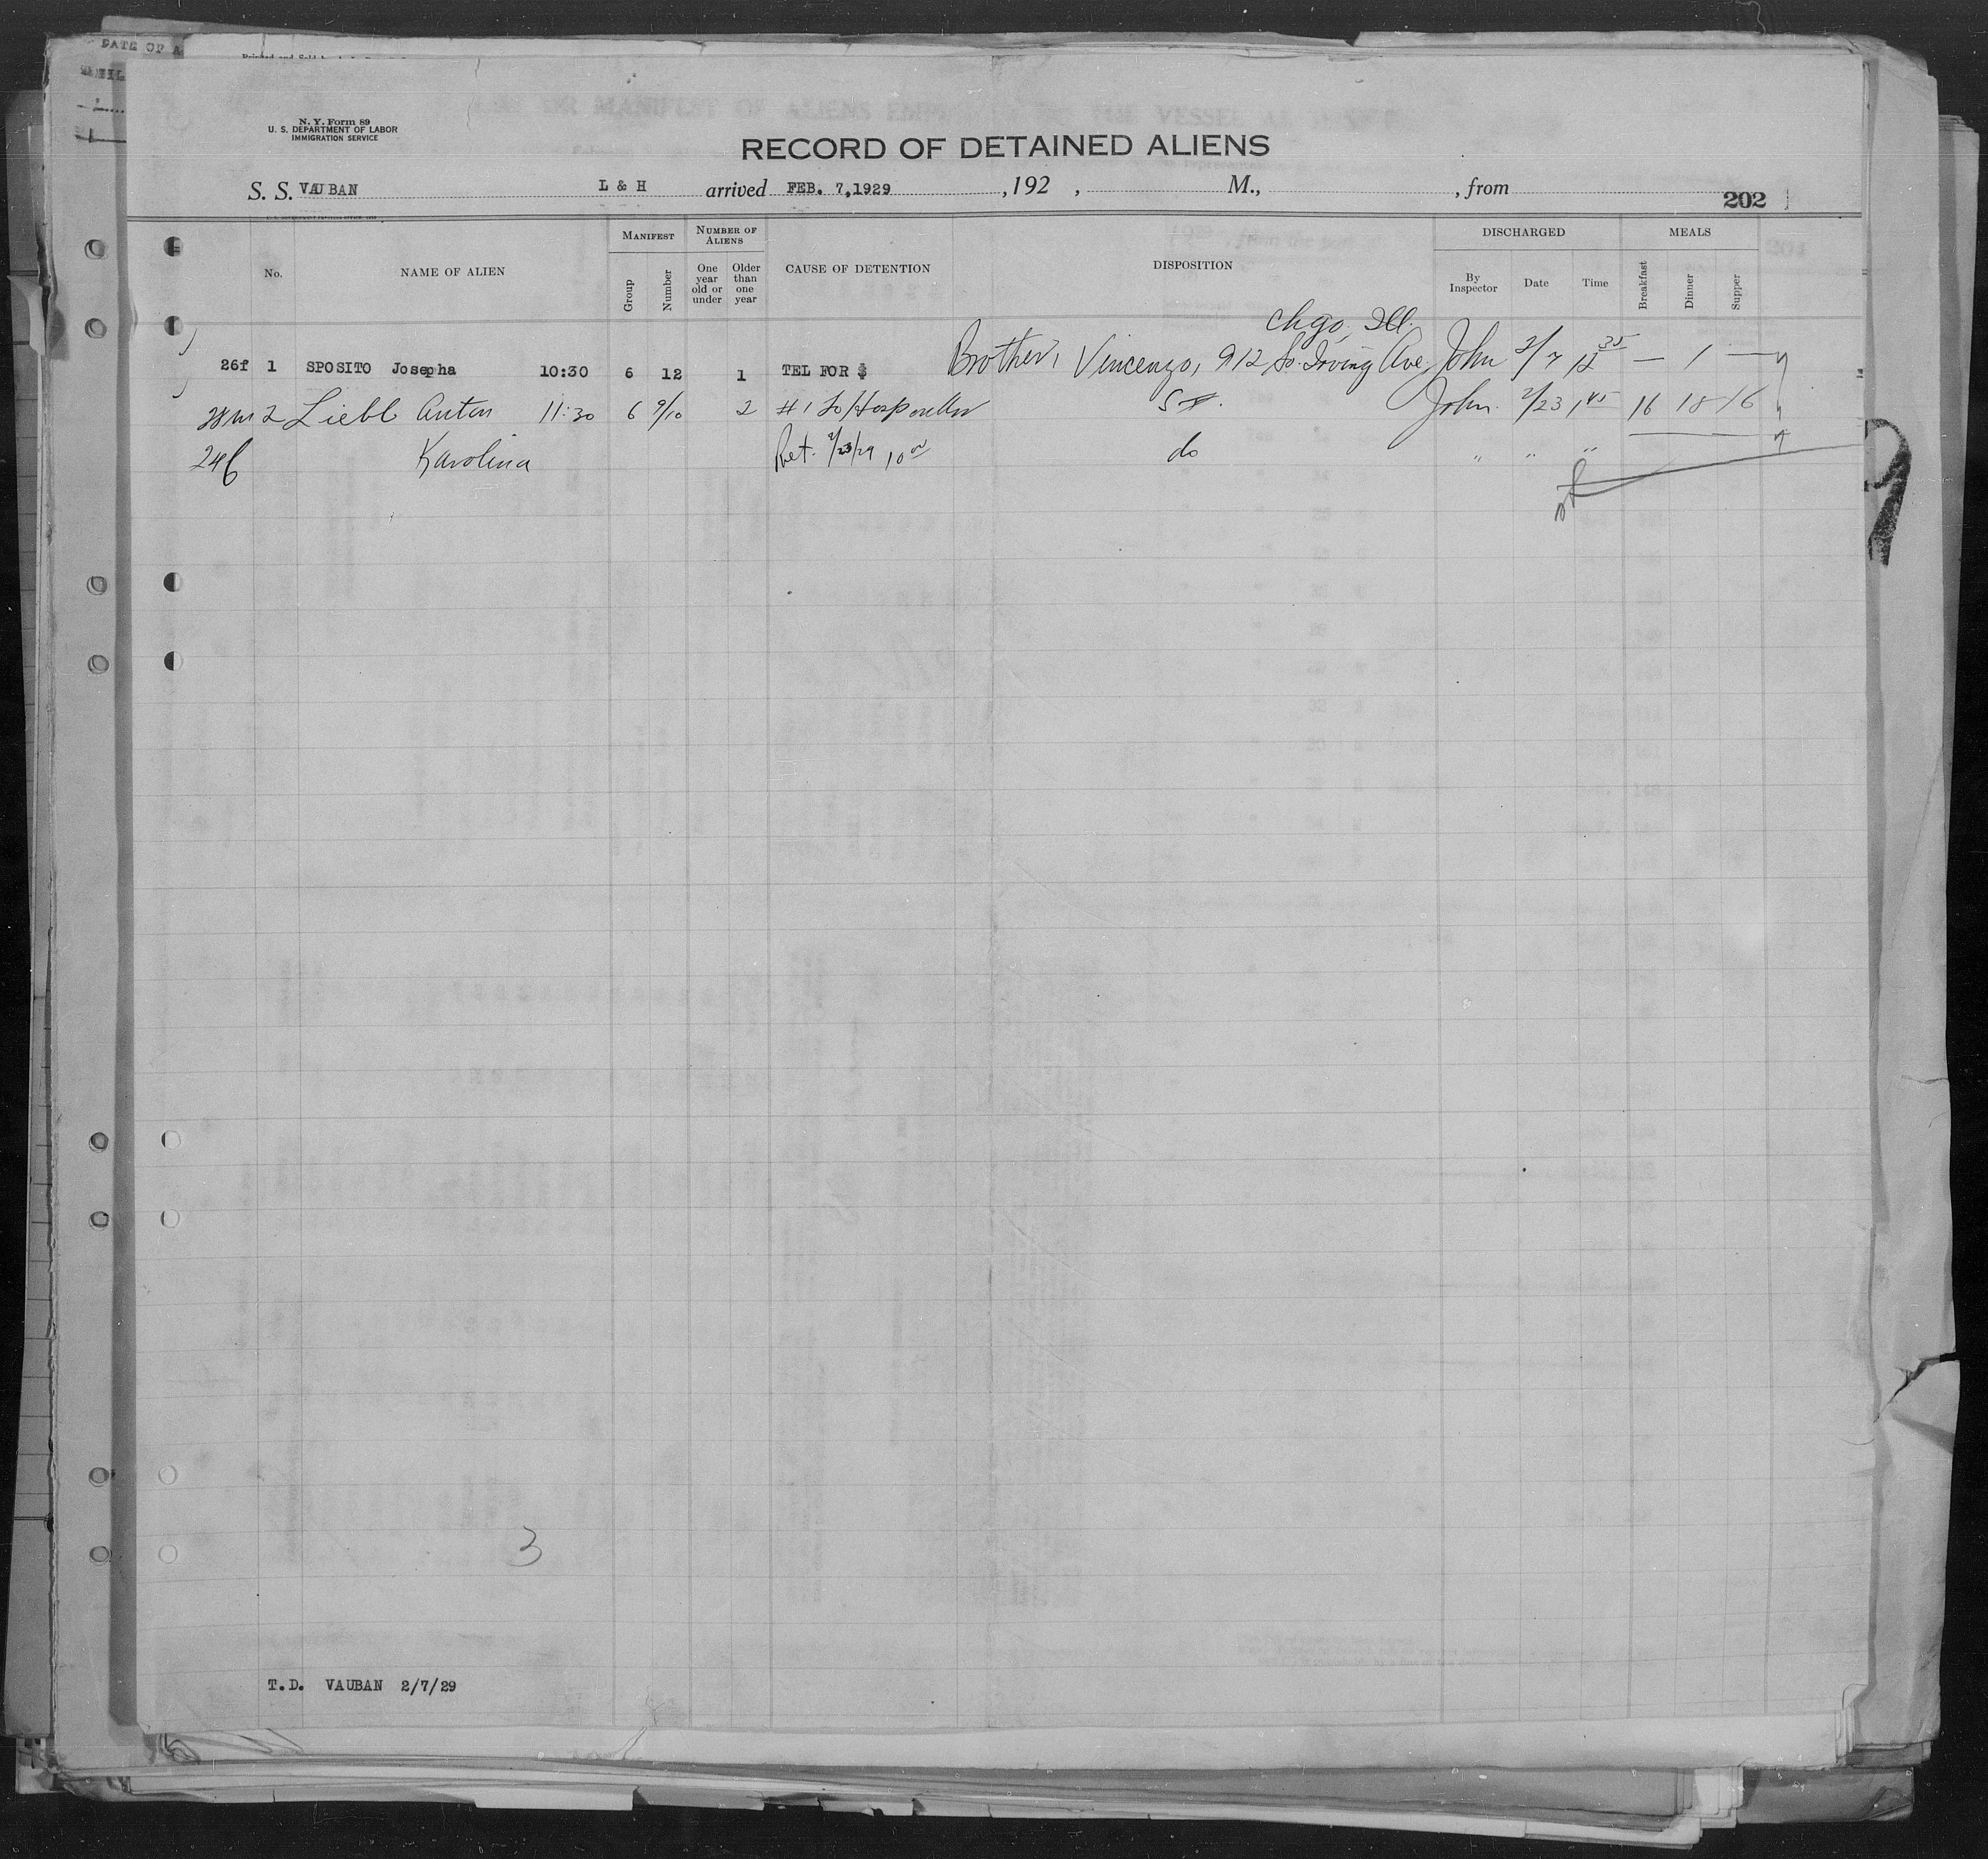 DATE OF A
N. Y. Form 89
U. S. DEPARTMENT OF LABOR
IMMIGRATION SERVICE
RECORD OF DETAINED ALIENS
S. S. VAUBAN L & H arrived FEB. 7,1929 , 192 , M., , from
202
No. NAME OF ALIEN MANIFEST Group Number NUMBER OF ALIENS One year old or under Older than one year CAUSE OF DETENTION DISPOSITION DISCHARGED By Inspector Date Time MEALS Breakfast Dinner Supper
Chgo, Ill.
26f 1 SPOSITO Josepha 10:30 6 12 1 TEL FOR $ Brother, Vincenzo, 912 So. Irving Ave John 2/7 12 35 — 1 —
28m 2 Liebl Anton 11:30 6 9/10 2 #1 to Hosp John 2/23 1 45 16 18 16
24f Karolina Ret. 2/23/29 10 00 do " " "
3
T.D. VAUBAN 2/7/29